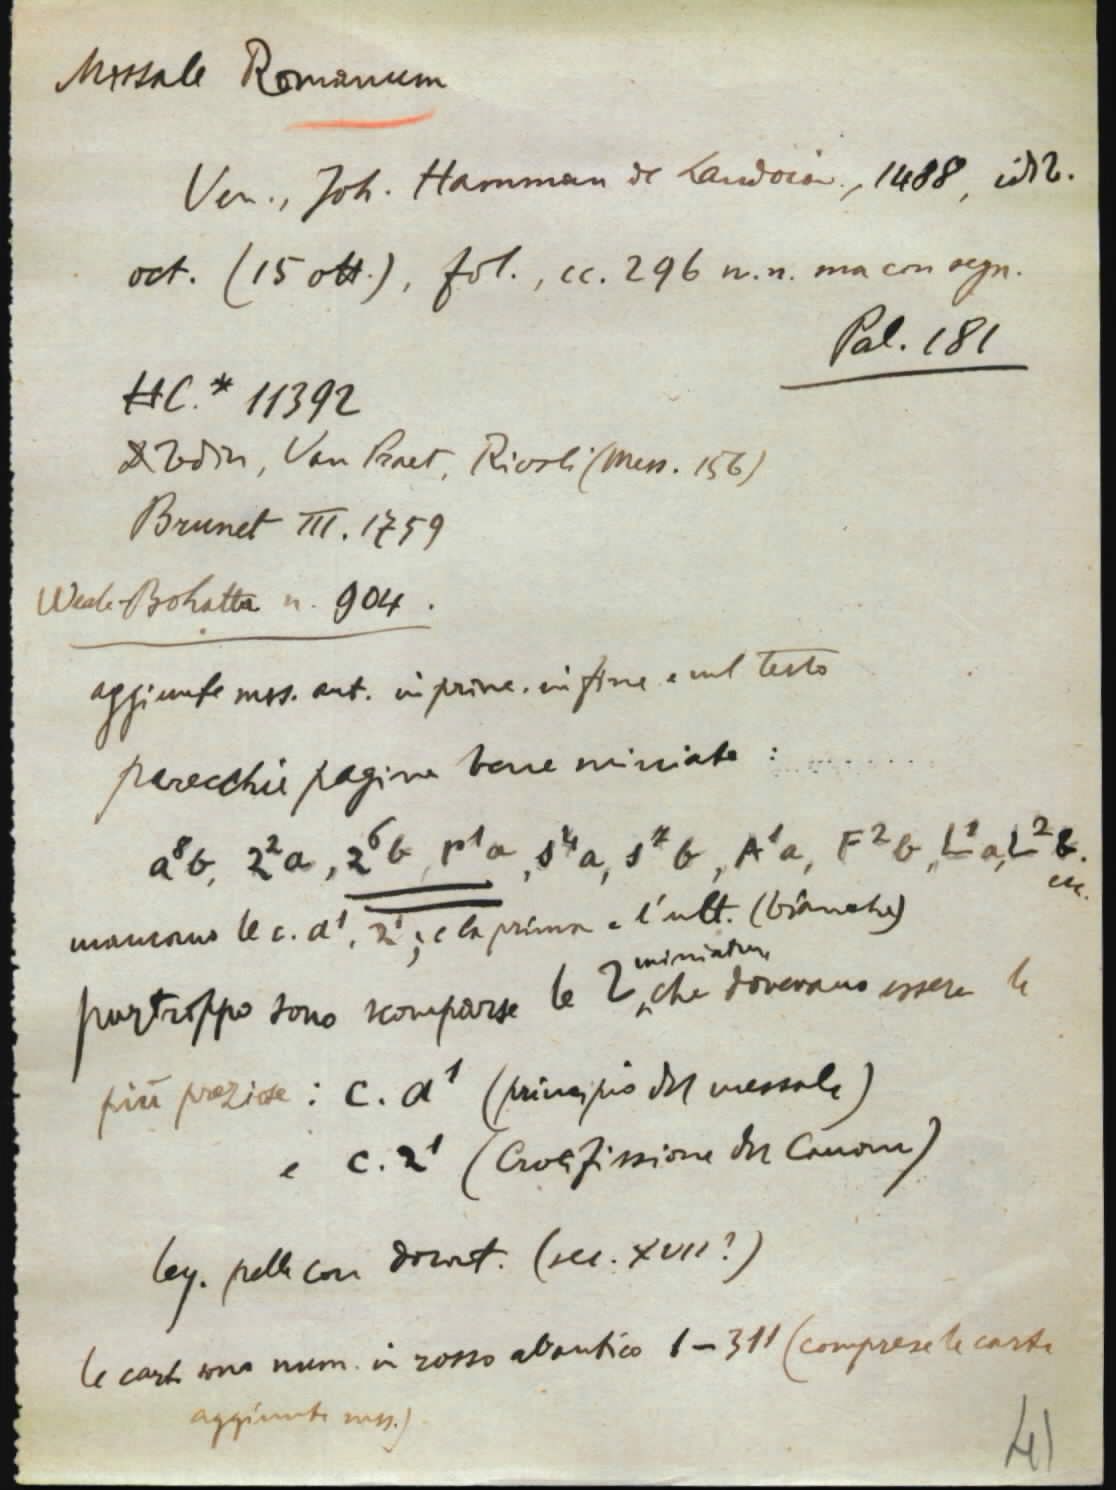 Missale Romanum
Ven., Joh. Hamman de Landoia, 1488, idib.
oct. (15 ott.), fol., cc. 296 n.n. ma con segn.
Pal. 181
HC.* 11392
Van Praet, Rivoli (Mess. 156)
Brunet III. 1759
Weale-Bohatta n. 904.
aggiunte mss. ant. in princ. in fine e nel testo
parecchie pagine bene miniate : ........
a⁸b, 2²a, 2⁶b, r¹a, s⁴a, s⁷b, A¹a, F²b, L¹a, L²b.
ecc.
mancano le c. a¹, 2¹; e la prima e l'ult. (bianche)
miniature
purtroppo sono scomparse le 2 che dovevano essere le
più preziose : c. a¹ (principio del messale)
e c. 2¹ (Crocifissione del Canone)
leg. pelle con dorat. (sec. XVII?)
le carte sono num. in rosso ab antico 1-311 (comprese le carte
aggiunte mss.)
41